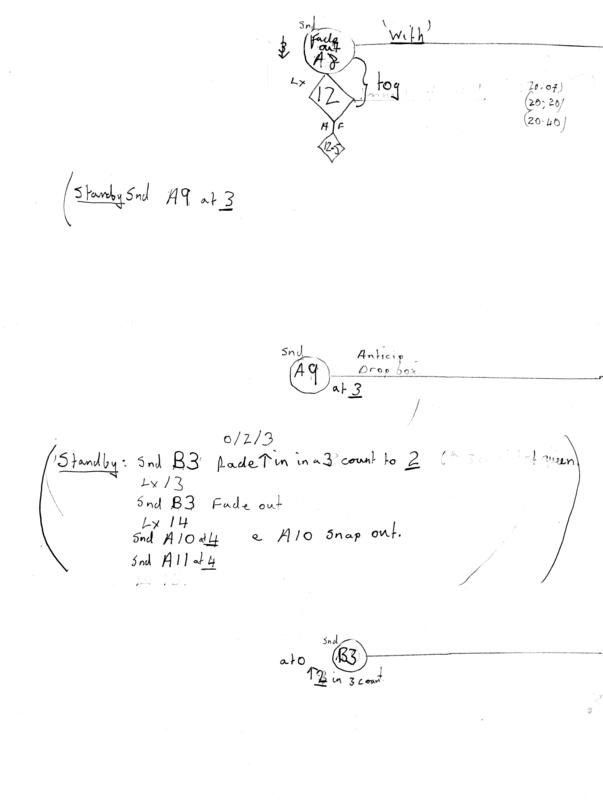 Snd
Fade 'With'
out
A8
tog
Lx
12
20.07
(20:20)
(20.40)
A F
12.5
(Standby Snd A9 at 3
Snd Anticip
A9 Drop box
at 3
0/2/3
(Standby: Snd B3 fade ↑ in in a 3 count to 2
Lx 13
Snd B3 Fade out
Lx 14
Snd A10 at 4 e A10 snap out.
Snd A11 at 4
Snd
at 0 B3
↑ 2 in 3 count